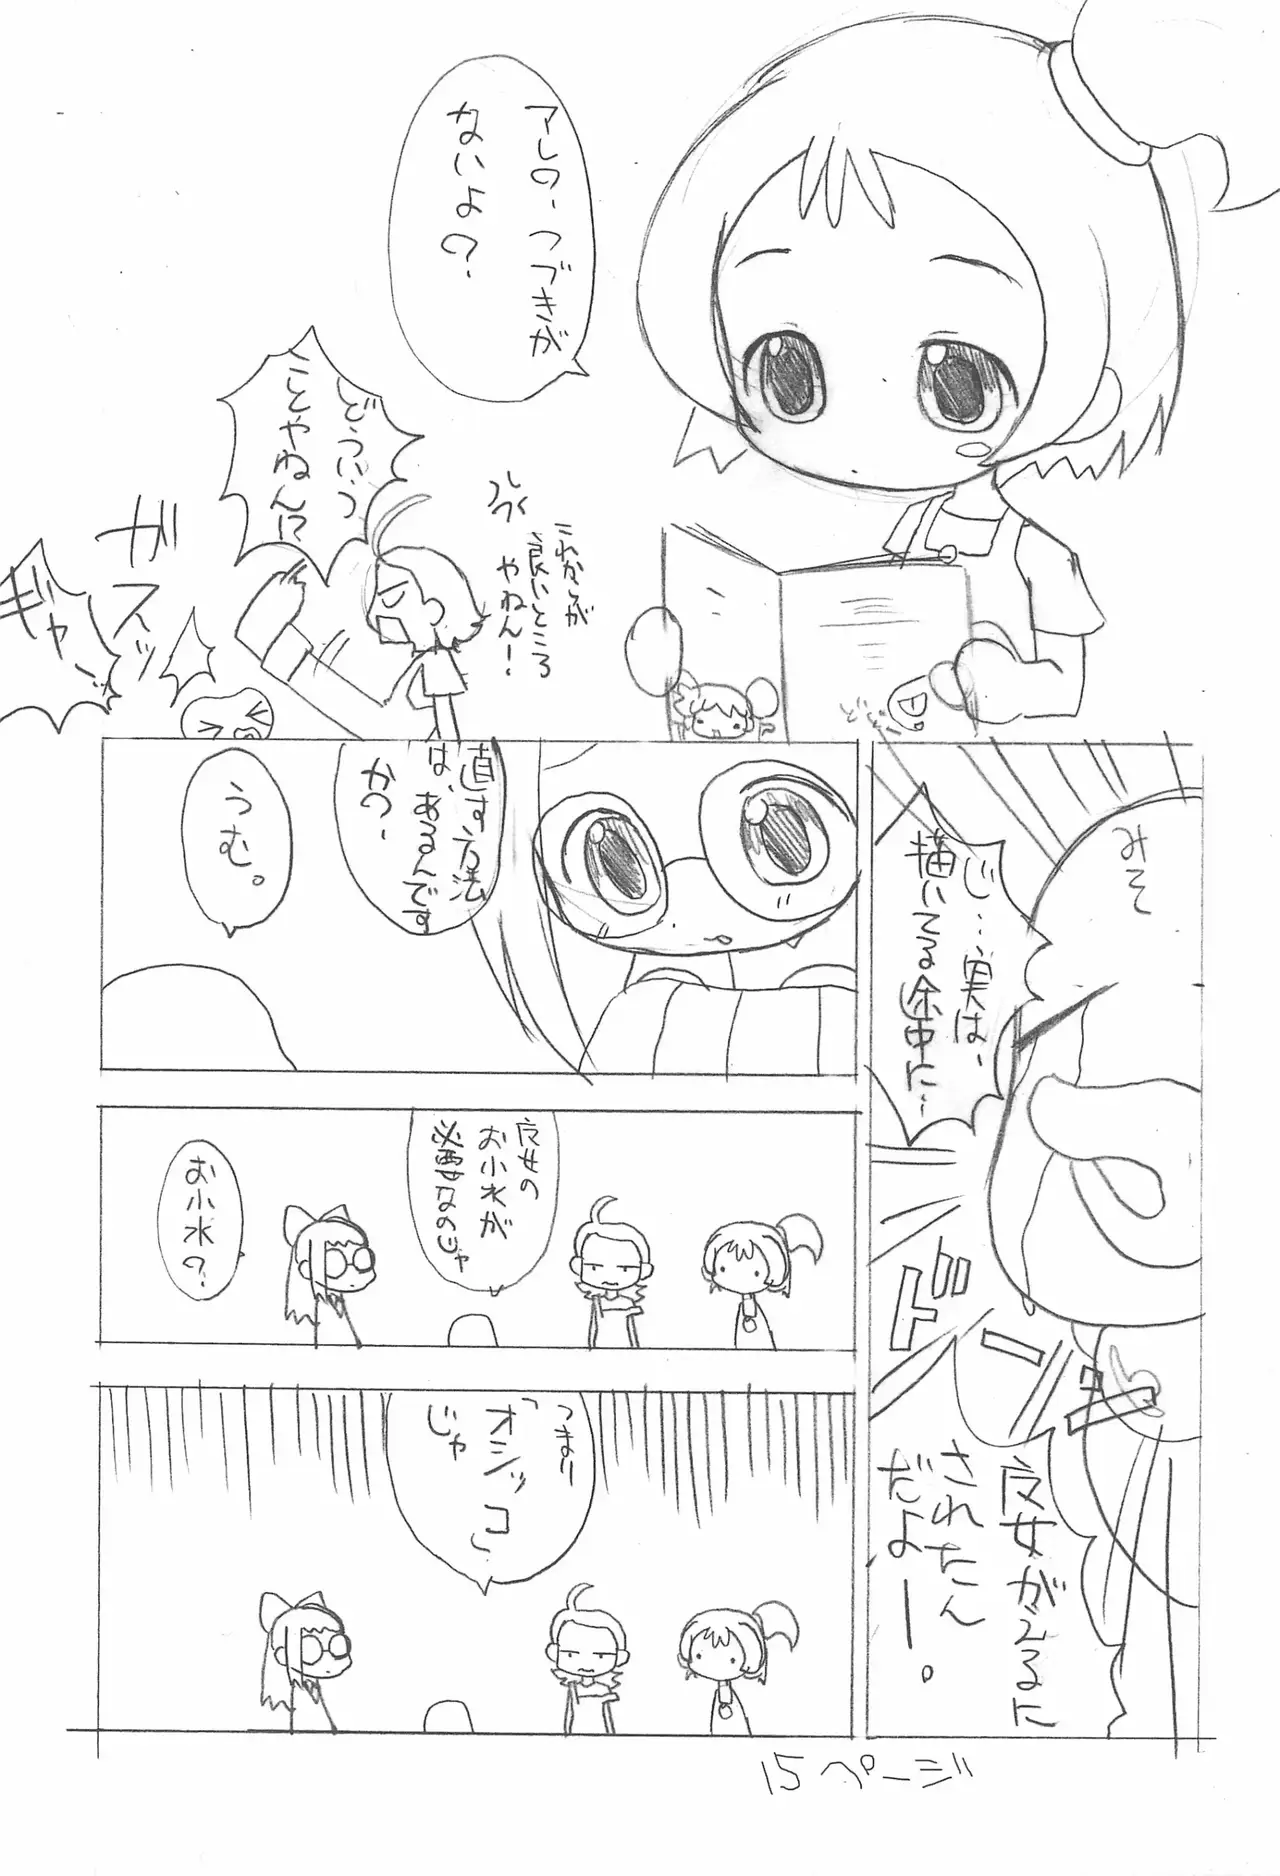 アレの、つづきが
ないよ?
これからが
良いところ
やねん!
どういう
ことやねんに
ガスッ
ギャー
みそ
じ…実は、
描いてる途中に…
ドーン
魔女ガエルに
されたん
だよー。
直す方法
は、あるんです
か?
うむ。
魔女の
お小水が
必要なのじゃ
お小水?
つまり
「オシッコ」
じゃ
15ページ